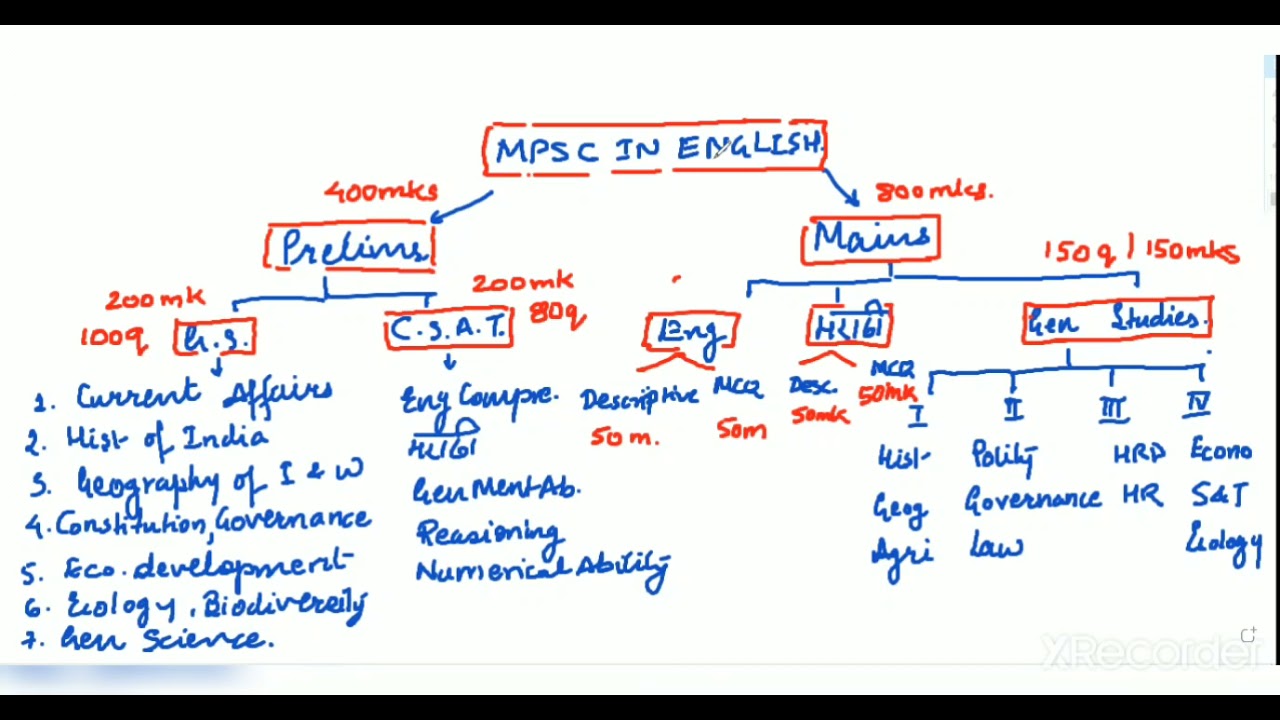 MPSC IN ENGLISH.
400mks
800mks.
Prelims
Mains
200mk
100q
G.S.
200mk
80q
C.S.A.T.
1. Current Affairs
2. Hist of India
3. Geography of I & W
4. Constitution, Governance
5. Eco. development
6. Ecology, Biodiversity
7. Gen Science.
Eng Compre.
मराठी
Gen Ment Ab.
Reasioning
Numerical Ability
Eng
Descriptive
50 m.
MCQ
50m
मराठी
Desc.
50mk
MCQ
50mk
150q / 150mks
Gen Studies.
I
Hist
Geog
Agri
II
Polity
Governance
Law
III
HRD
HR
IV
Econo
S&T
Ecology
XRecorder